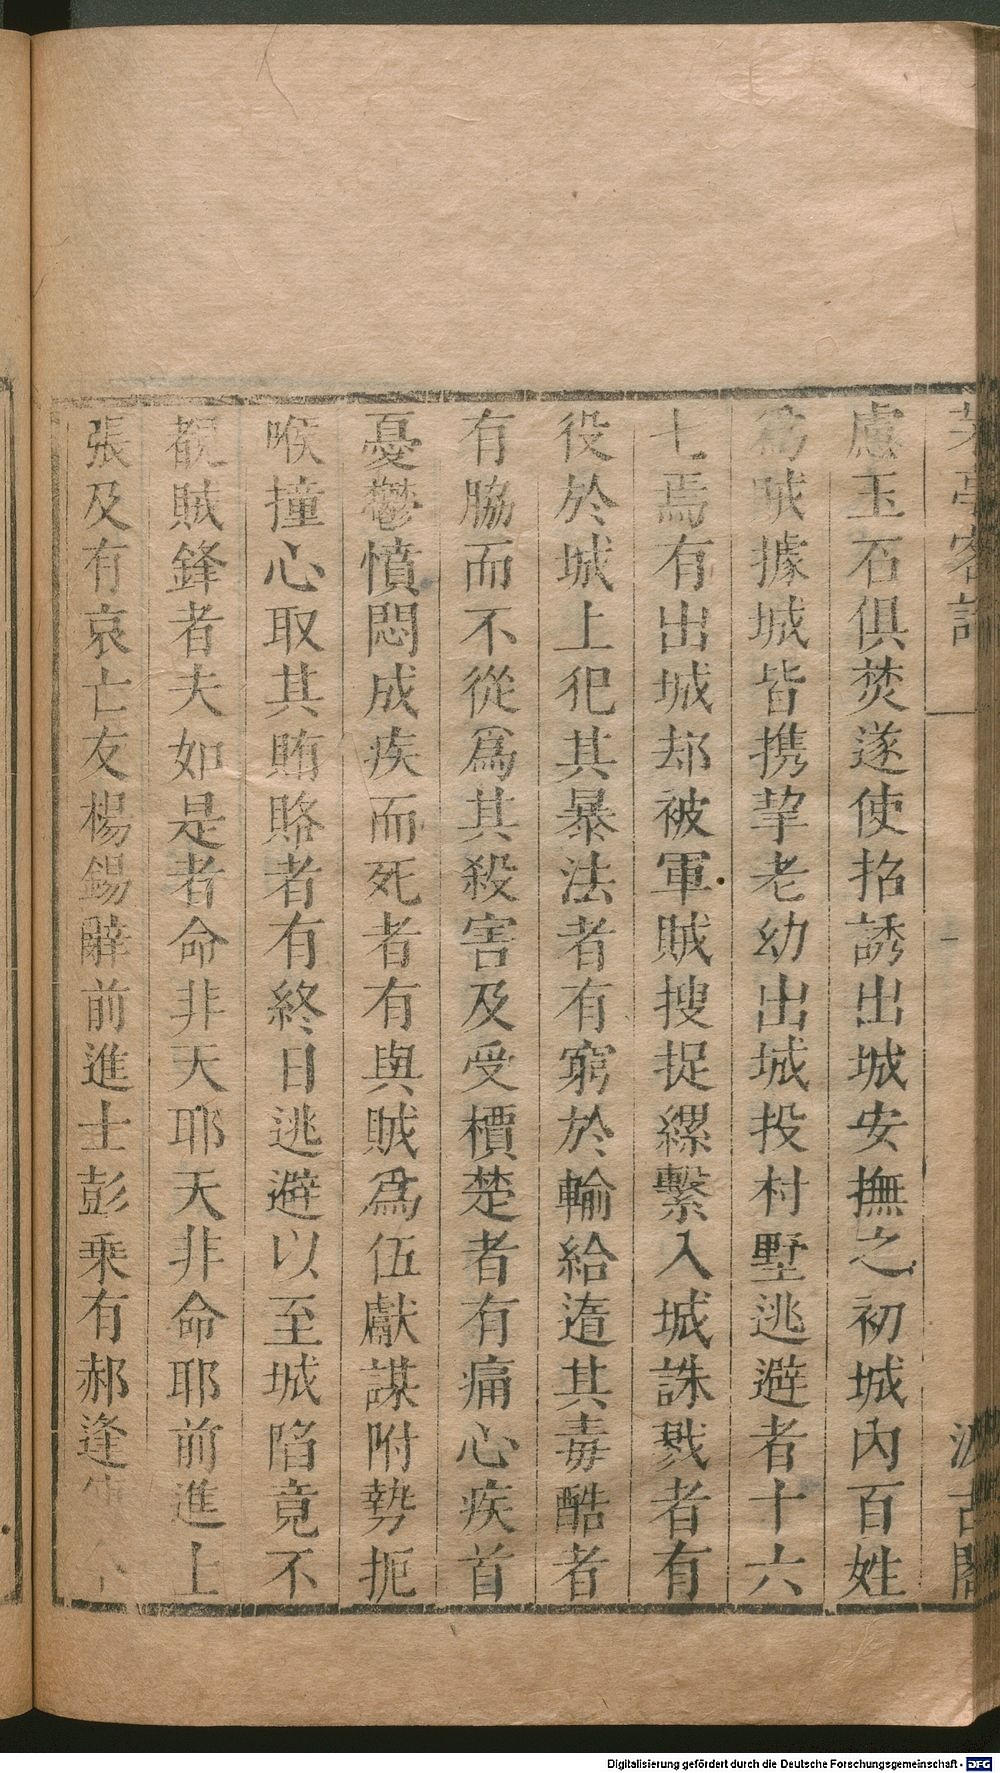 茅亭客話
一
汲古閣
慮玉石俱焚遂使招誘出城安撫之初城內百姓
爲賊據城皆携挈老幼出城投村墅逃避者十六
七焉有出城却被軍賊搜捉縲繫入城誅戮者有
役於城上犯其暴法者有窮於輸給遭其毒酷者
有脇而不從爲其殺害及受檟楚者有痛心疾首
憂鬱憤悶成疾而死者有與賊爲伍獻謀附勢扼
喉撞心取其賄賂者有終日逃避以至城陷竟不
覩賊鋒者夫如是者命非天耶天非命耶前進士
張及有哀亡友楊錫辭前進士彭乗有郝逢
Digitalisierung gefördert durch die Deutsche Forschungsgemeinschaft - DFG